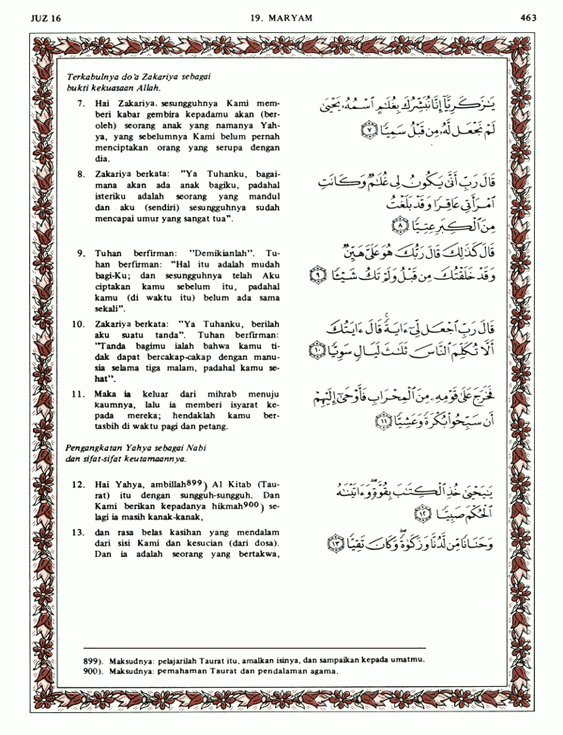 JUZ 16
19. MARYAM
463
Terkabulnya do'a Zakariya sebagai
bukti kekuasaan Allah.
7. Hai Zakariya, sesungguhnya Kami mem-
beri kabar gembira kepadamu akan (ber-
oleh) seorang anak yang namanya Yah-
ya, yang sebelumnya Kami belum pernah
menciptakan orang yang serupa dengan
dia.
يَٰزَكَرِيَّآ إِنَّا نُبَشِّرُكَ بِغُلَٰمٍ ٱسْمُهُۥ يَحْيَىٰ
لَمْ نَجْعَل لَّهُۥ مِن قَبْلُ سَمِيًّا ﴿٧﴾
8. Zakariya berkata: "Ya Tuhanku, bagai-
mana akan ada anak bagiku, padahal
isteriku adalah seorang yang mandul
dan aku (sendiri) sesungguhnya sudah
mencapai umur yang sangat tua".
قَالَ رَبِّ أَنَّىٰ يَكُونُ لِى غُلَٰمٌ وَكَانَتِ
ٱمْرَأَتِى عَاقِرًا وَقَدْ بَلَغْتُ
مِنَ ٱلْكِبَرِ عِتِيًّا ﴿٨﴾
9. Tuhan berfirman: "Demikianlah". Tu-
han berfirman: "Hal itu adalah mudah
bagi-Ku; dan sesungguhnya telah Aku
ciptakan kamu sebelum itu, padahal
kamu (di waktu itu) belum ada sama
sekali".
قَالَ كَذَٰلِكَ قَالَ رَبُّكَ هُوَ عَلَىَّ هَيِّنٌ
وَقَدْ خَلَقْتُكَ مِن قَبْلُ وَلَمْ تَكُ شَيْـًٔا ﴿٩﴾
10. Zakariya berkata: "Ya Tuhanku, berilah
aku suatu tanda". Tuhan berfirman:
"Tanda bagimu ialah bahwa kamu ti-
dak dapat bercakap-cakap dengan manu-
sia selama tiga malam, padahal kamu se-
hat".
قَالَ رَبِّ ٱجْعَل لِّىٓ ءَايَةً قَالَ ءَايَتُكَ
أَلَّا تُكَلِّمَ ٱلنَّاسَ ثَلَٰثَ لَيَالٍ سَوِيًّا ﴿١٠﴾
11. Maka ia keluar dari mihrab menuju
kaumnya, lalu ia memberi isyarat ke-
pada mereka; hendaklah kamu ber-
tasbih di waktu pagi dan petang.
فَخَرَجَ عَلَىٰ قَوْمِهِۦ مِنَ ٱلْمِحْرَابِ فَأَوْحَىٰٓ إِلَيْهِمْ
أَن سَبِّحُوا۟ بُكْرَةً وَعَشِيًّا ﴿١١﴾
Pengangkatan Yahya sebagai Nabi
dan sifat-sifat keutamaannya.
12. Hai Yahya, ambillah899) Al Kitab (Tau-
rat) itu dengan sungguh-sungguh. Dan
Kami berikan kepadanya hikmah900) se-
lagi ia masih kanak-kanak,
يَٰيَحْيَىٰ خُذِ ٱلْكِتَٰبَ بِقُوَّةٍ وَءَاتَيْنَٰهُ
ٱلْحُكْمَ صَبِيًّا ﴿١٢﴾
13. dan rasa belas kasihan yang mendalam
dari sisi Kami dan kesucian (dari dosa).
Dan ia adalah seorang yang bertakwa,
وَحَنَانًا مِّن لَّدُنَّا وَزَكَوٰةً وَكَانَ تَقِيًّا ﴿١٣﴾
899). Maksudnya: pelajarilah Taurat itu, amalkan isinya, dan sampaikan kepada umatmu.
900). Maksudnya: pemahaman Taurat dan pendalaman agama.